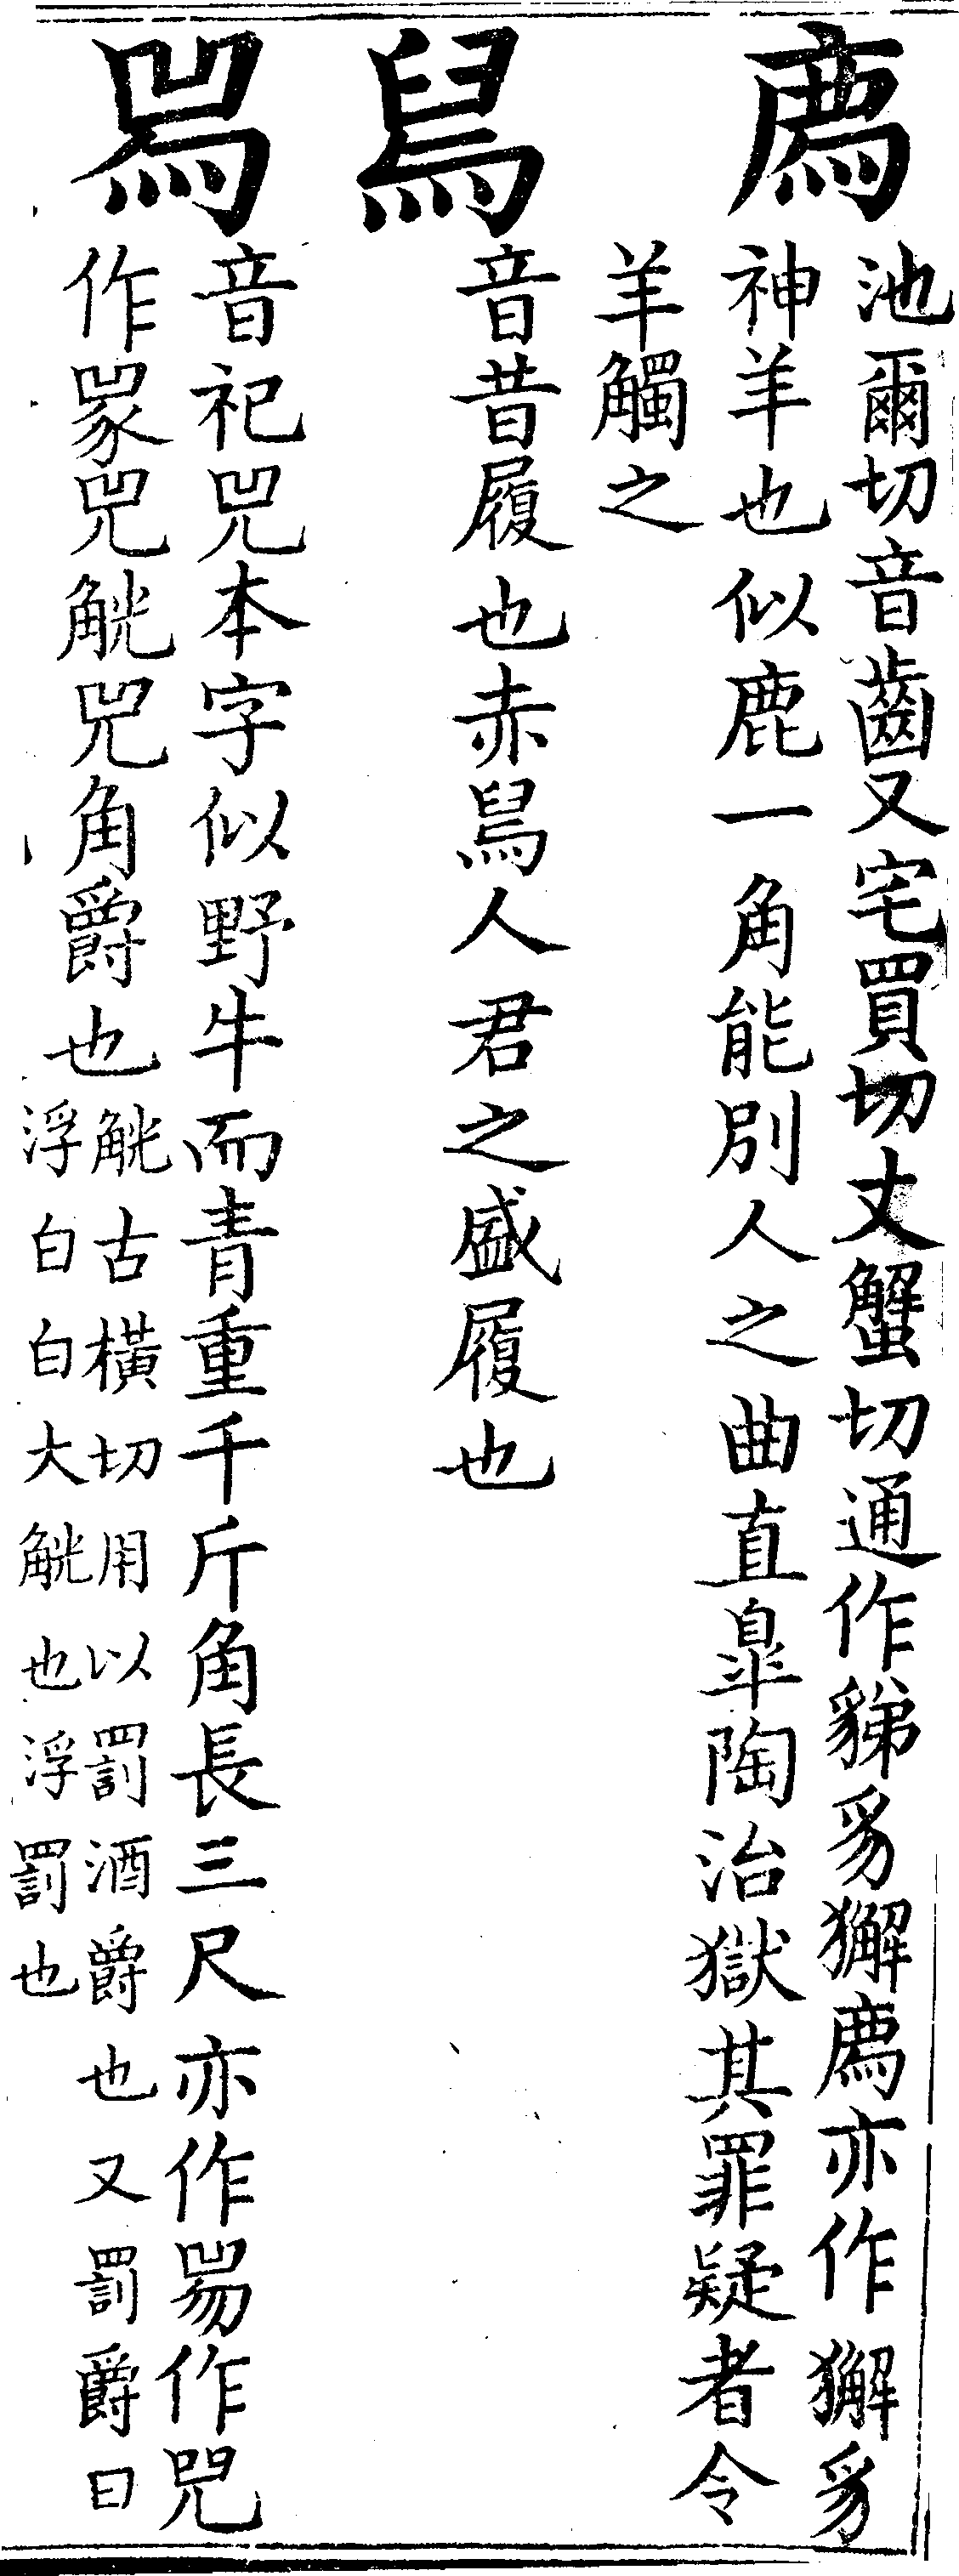 廌
池爾切音齒又宅買切丈蟹切通作䝱豸獬廌亦作獬豸
神羊也似鹿一角能別人之曲直臯陶治獄其罪疑者令
羊觸之
舄
音昔履也赤舄人君之盛履也
𤉡
音祀兕本字似野牛而青重千斤角長三尺亦作𠒅作咒
作𧰽兕觥兕角爵也
觥古橫切用以罰酒爵也又罰爵曰
浮白白大觥也浮罰也